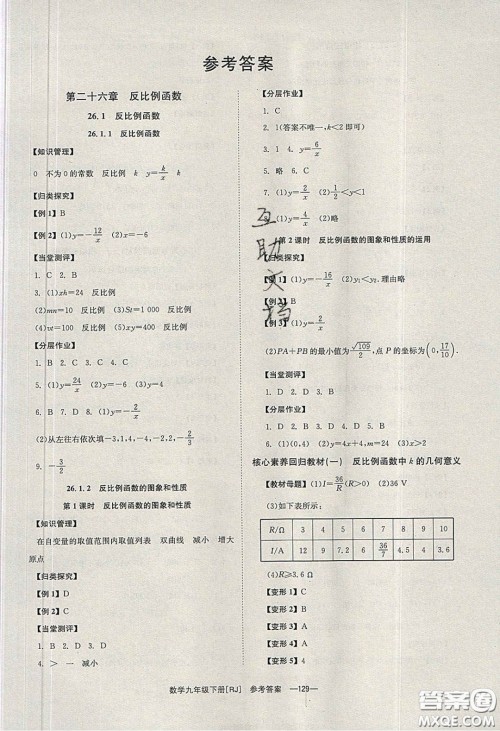 参考答案
第二十六章 反比例函数
26.1 反比例函数
26.1.1 反比例函数
【知识管理】
0 不为0的常数 反比例 k y=k/x k
【归类探究】
【例1】B
【例2】(1)y=-12/x (2)x=-6
【当堂测评】
1. C 2. B
3. (1)xh=24 反比例
(2)mn=10 反比例 (3)St=1 000 反比例
(4)vt=100 反比例 (5)xy=4 反比例
【分层作业】
1. B 2. C 3. C 4. B
5. (1)y=24/x (2)x=-6 (3)y=-6
6. B 7. B
8. (1)y=2/x
(2)从左往右依次填-3,1,4,-4,-2,2,-2/3
9. -3/2
26.1.2 反比例函数的图象和性质
第1课时 反比例函数的图象和性质
【知识管理】
在自变量的取值范围内取值列表 双曲线 减小 增大
原点
【归类探究】
【例1】D
【例2】C
【当堂测评】
1. C 2. A 3. D
4. > 一 减小
【分层作业】
1. C
2. 1(答案不唯一,k<2即可)
3. 1 4. y=6/x
5. 略 6. C
7. (1)y=2/x (2)1/2<y<1
8. (1)y=4/x (2)略
第2课时 反比例函数的图象和性质的运用
【归类探究】
【例1】(1)y=-16/x (2)y₁<y₂.理由略
【例2】B
【例3】(1)y=2/x
(2)PA+PB的最小值为√109/2,点P的坐标为(0,17/10).
【当堂测评】
1. D 2. D 3. D
【分层作业】
1. D 2. D 3. B 4. B 5. D
6. (1)(0,4) (2)y=4x+4,m=2 (3)C
核心素养回归教材(一) 反比例函数中k的几何意义
【教材母题】(1)I=36/R(R>0) (2)36 V
(3)如下表所示:
R/Ω 3 4 5 6 7 8 9 10
I/A 12 9 7.2 6 36/7 4.5 4 3.6
(4)R≥3.6 Ω
【变形1】C
【变形2】A
【变形3】B
【变形4】C
【变形5】4
互助文档
数学九年级下册[RJ] 参考答案 —129—
答案圈
MXQE.COM